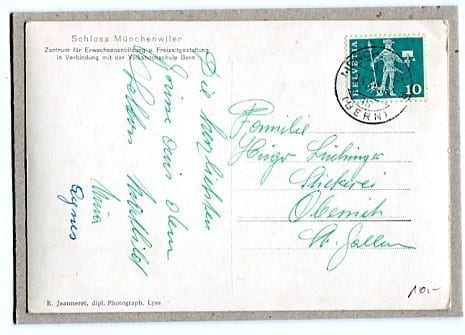 Schloss Münchenwiler
Zentrum für Erwachsenenbildung u. Freizeitgestaltung
in Verbindung mit der Volkshochschule Bern
HELVETIA
10
(BERN)
Die herzlichsten
Grüsse aus dem
Maria
Agnes
Familie
Hugo
Stickerei
St. Gallen
R. Jeanneret, dipl. Photograph, Lyss
10.-